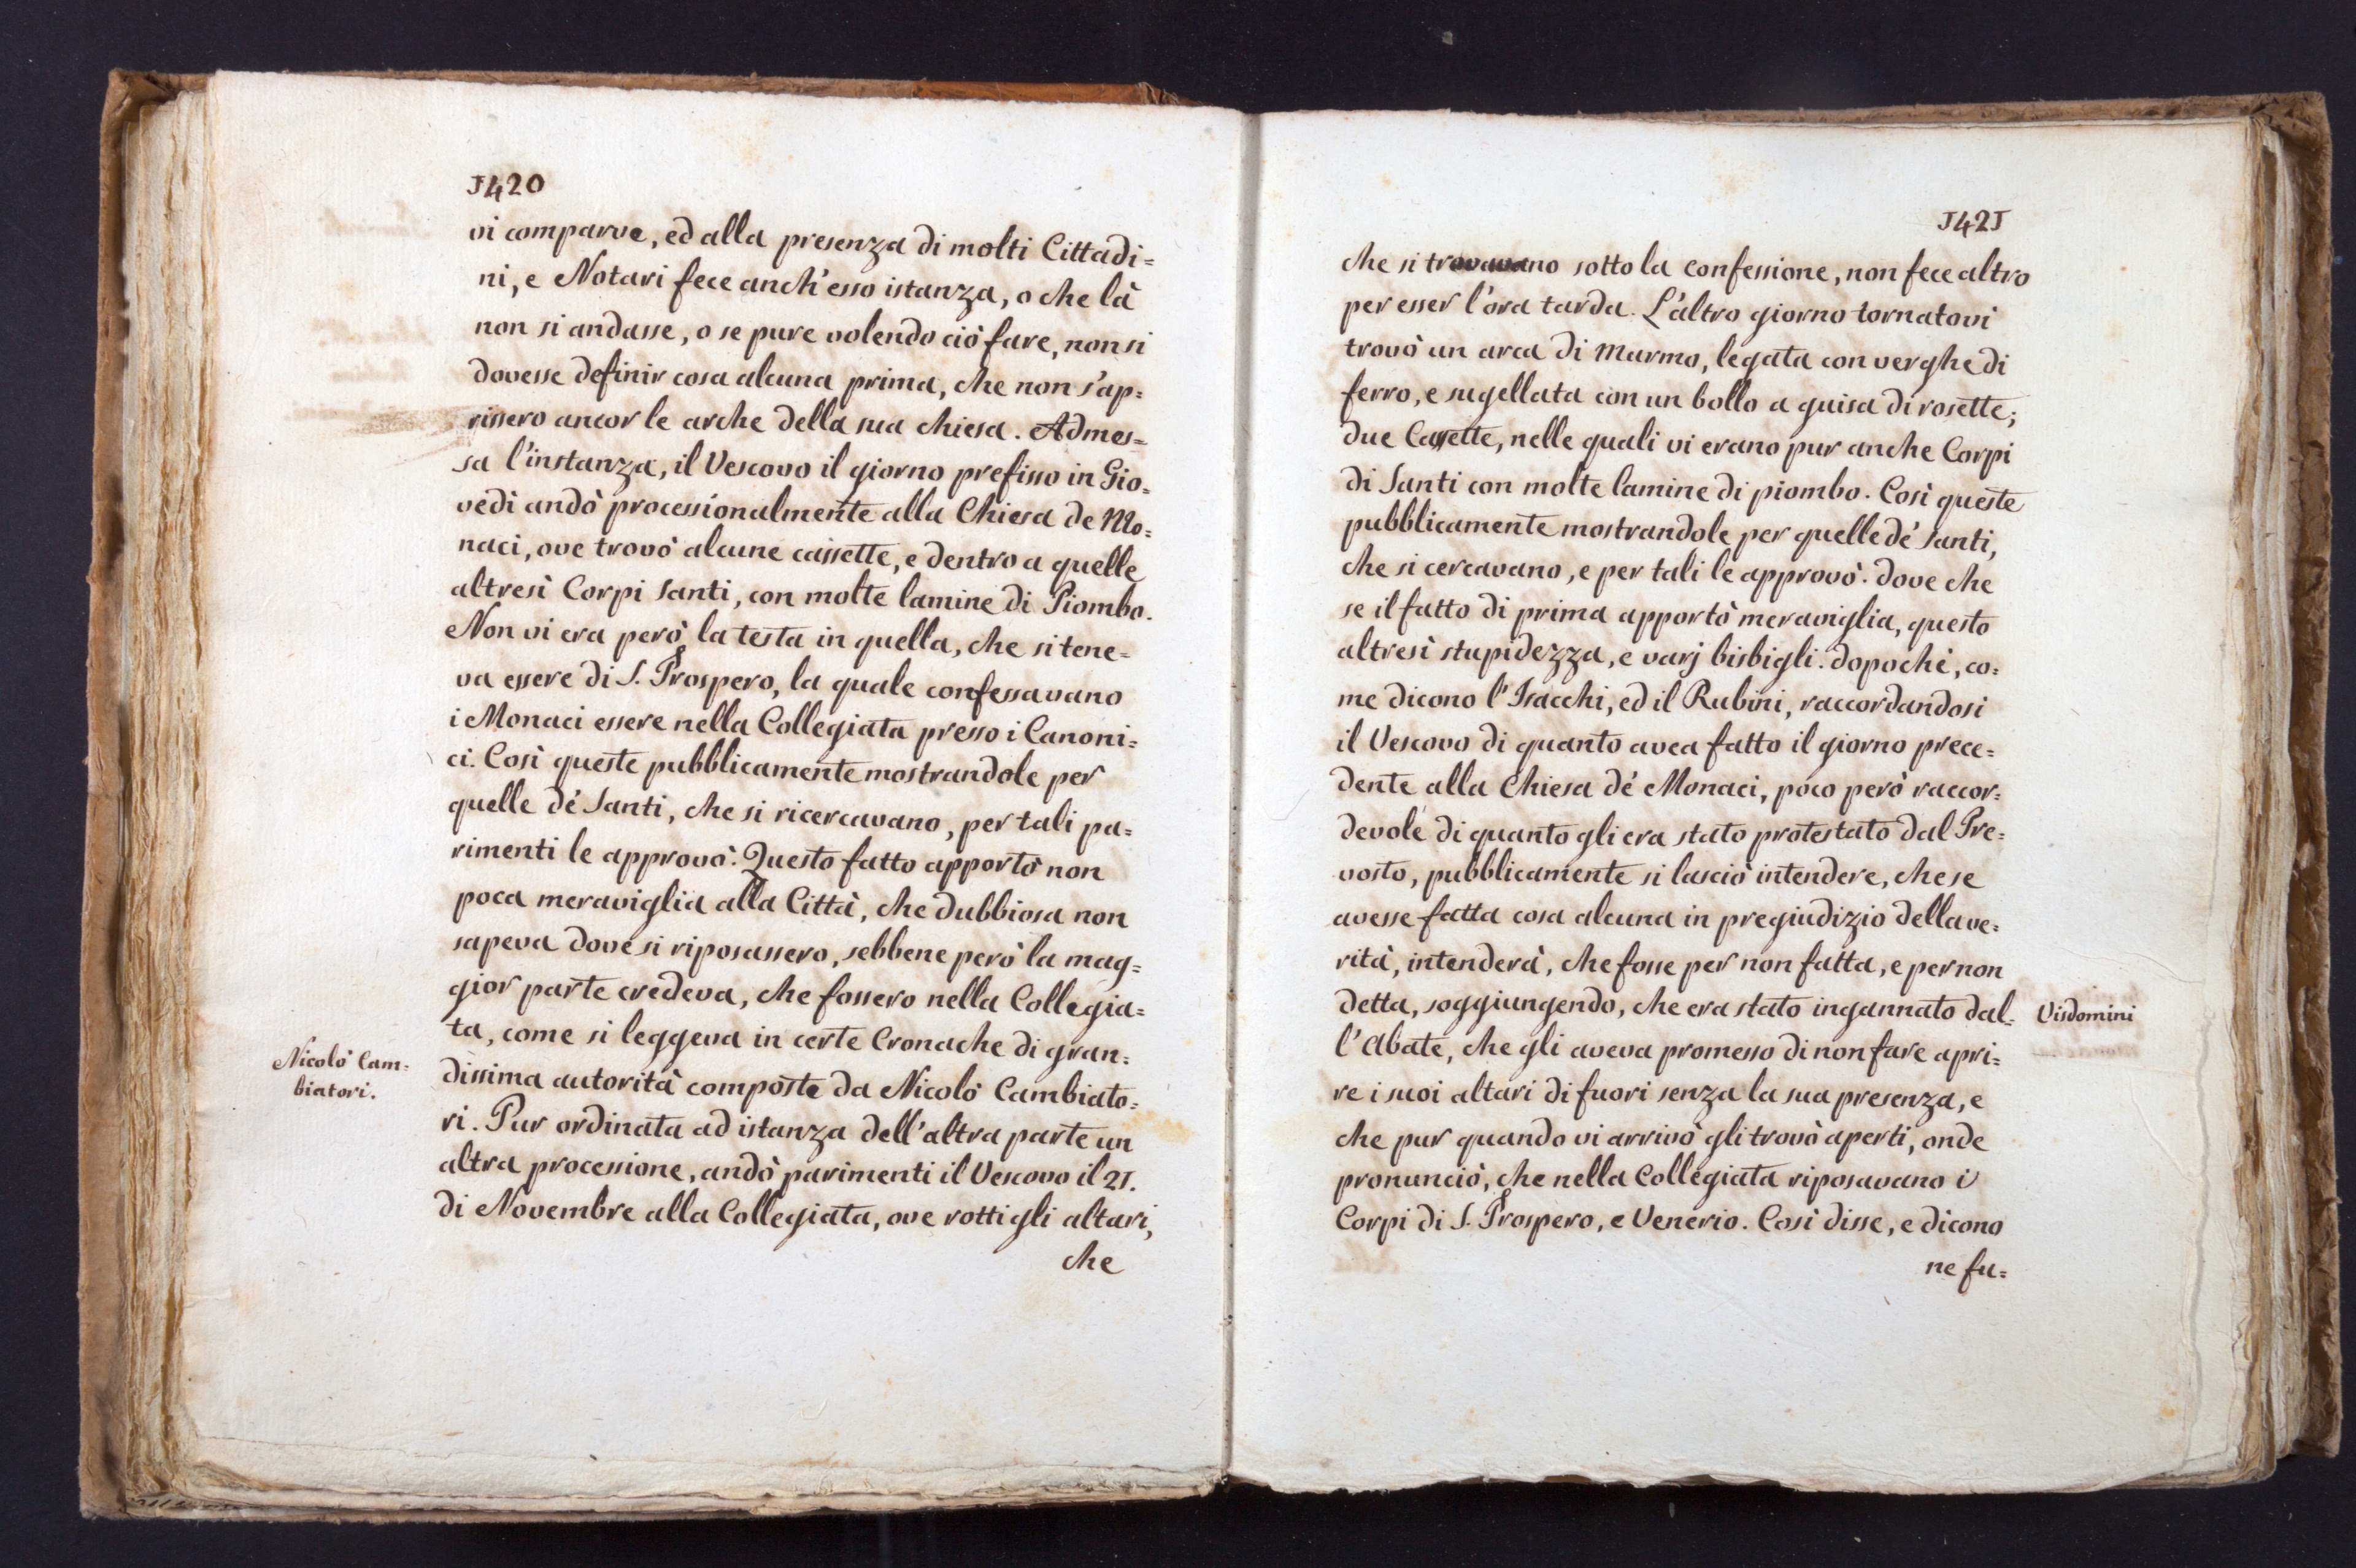 1420
vi comparve, ed alla presenza di molti Cittadi=
ni, e Notari fece anch'esso istanza, o che là
non si andasse, o se pure volendo ciò fare, non si
dovesse definir cosa alcuna prima, che non s'ap=
rissero ancor le arche della sua chiesa. Admes=
sa l'instanza, il Vescovo il giorno prefisso in Gio=
vedì andò processionalmente alla Chiesa de Mo=
naci, ove trovò alcune cassette, e dentro a quelle
altresì Corpi Santi, con molte lamine di Piombo.
Non vi era però la testa in quella, che si tene=
va essere di S. Prospero, la quale confessavano
i Monaci essere nella Collegiata presso i Canoni=
ci. Così queste pubblicamente mostrandole per
quelle de' Santi, che si ricercavano, per tali pa=
rimenti le approvò. Questo fatto apportò non
poca meraviglia alla Città, che dubbiosa non
sapeva dove si riposassero, sebbene però la mag=
gior parte credeva, che fossero nella Collegia=
ta, come si leggeva in certe Cronache di gran=
dissima autorità composte da Nicolò Cambiato=
ri. Pur ordinata ad istanza dell'altra parte un
altra processione, andò parimenti il Vescovo il 21.
di Novembre alla Collegiata, ove rotti gli altari,
che
Nicolò Cam=
biatori.
1421
che si trovavano sotto la confessione, non fece altro
per esser l'ora tarda. L'altro giorno tornatovi
trovò un arca di Marmo, legata con verghe di
ferro, e sugellata con un bollo a guisa di rosette;
due Cassette, nelle quali vi erano pur anche Corpi
di Santi con molte lamine di piombo. Così queste
pubblicamente mostrandole per quelle de' Santi,
che si cercavano, e per tali le approvò. Dove che
se il fatto di prima apportò meraviglia, questo
altresì stupidezza, e varj bisbigli. Dopochè, co=
me dicono l'Isacchi, ed il Rubini, raccordandosi
il Vescovo di quanto avea fatto il giorno prece=
dente alla Chiesa de' Monaci, poco però raccor=
devole di quanto gli era stato protestato dal Pre=
vosto, pubblicamente si lasciò intendere, che se
avesse fatta cosa alcuna in pregiudizio della ve=
rità, intenderà, che fosse per non fatta, e per non
detta, soggiungendo, che era stato ingannato dal=
l'Abate, che gli aveva promesso di non fare apri=
re i suoi altari di fuori senza la sua presenza, e
che pur quando vi arrivò gli trovò aperti, onde
pronunciò, che nella Collegiata riposavano i
Corpi di S. Prospero, e Venerio. Così disse, e dicono
ne fu=
Visdomini